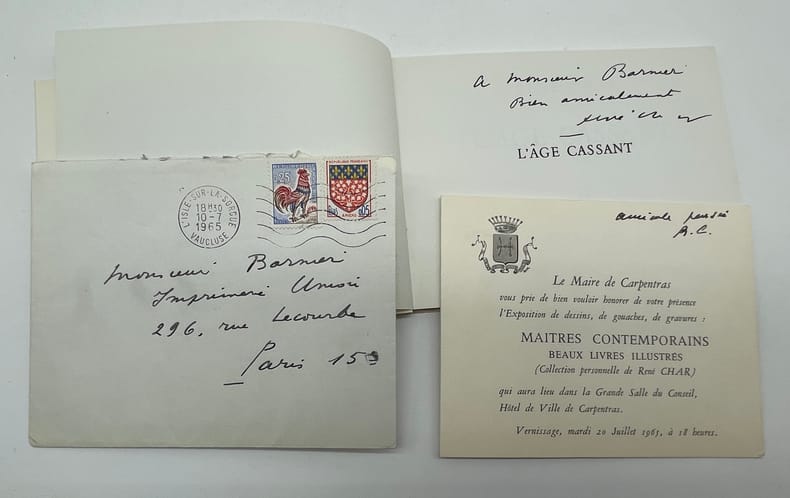 A Monsieur Barnier
Bien amicalement
René Char
L'ÂGE CASSANT
L'ISLE-SUR-LA-SORGUE
18H30
10-7
1965
VAUCLUSE
25
REPUBLIQUE FRANÇAISE
0,05
AMIENS
Monsieur Barnier
Imprimerie Union
296, rue Lecourbe
Paris 15
amicale pensée
R.C.
Le Maire de Carpentras
vous prie de bien vouloir honorer de votre présence
l'Exposition de dessins, de gouaches, de gravures :
MAITRES CONTEMPORAINS
BEAUX LIVRES ILLUSTRÉS
(Collection personnelle de René CHAR)
qui aura lieu dans la Grande Salle du Conseil,
Hôtel de Ville de Carpentras.
Vernissage, mardi 20 Juillet 1965, à 18 heures.